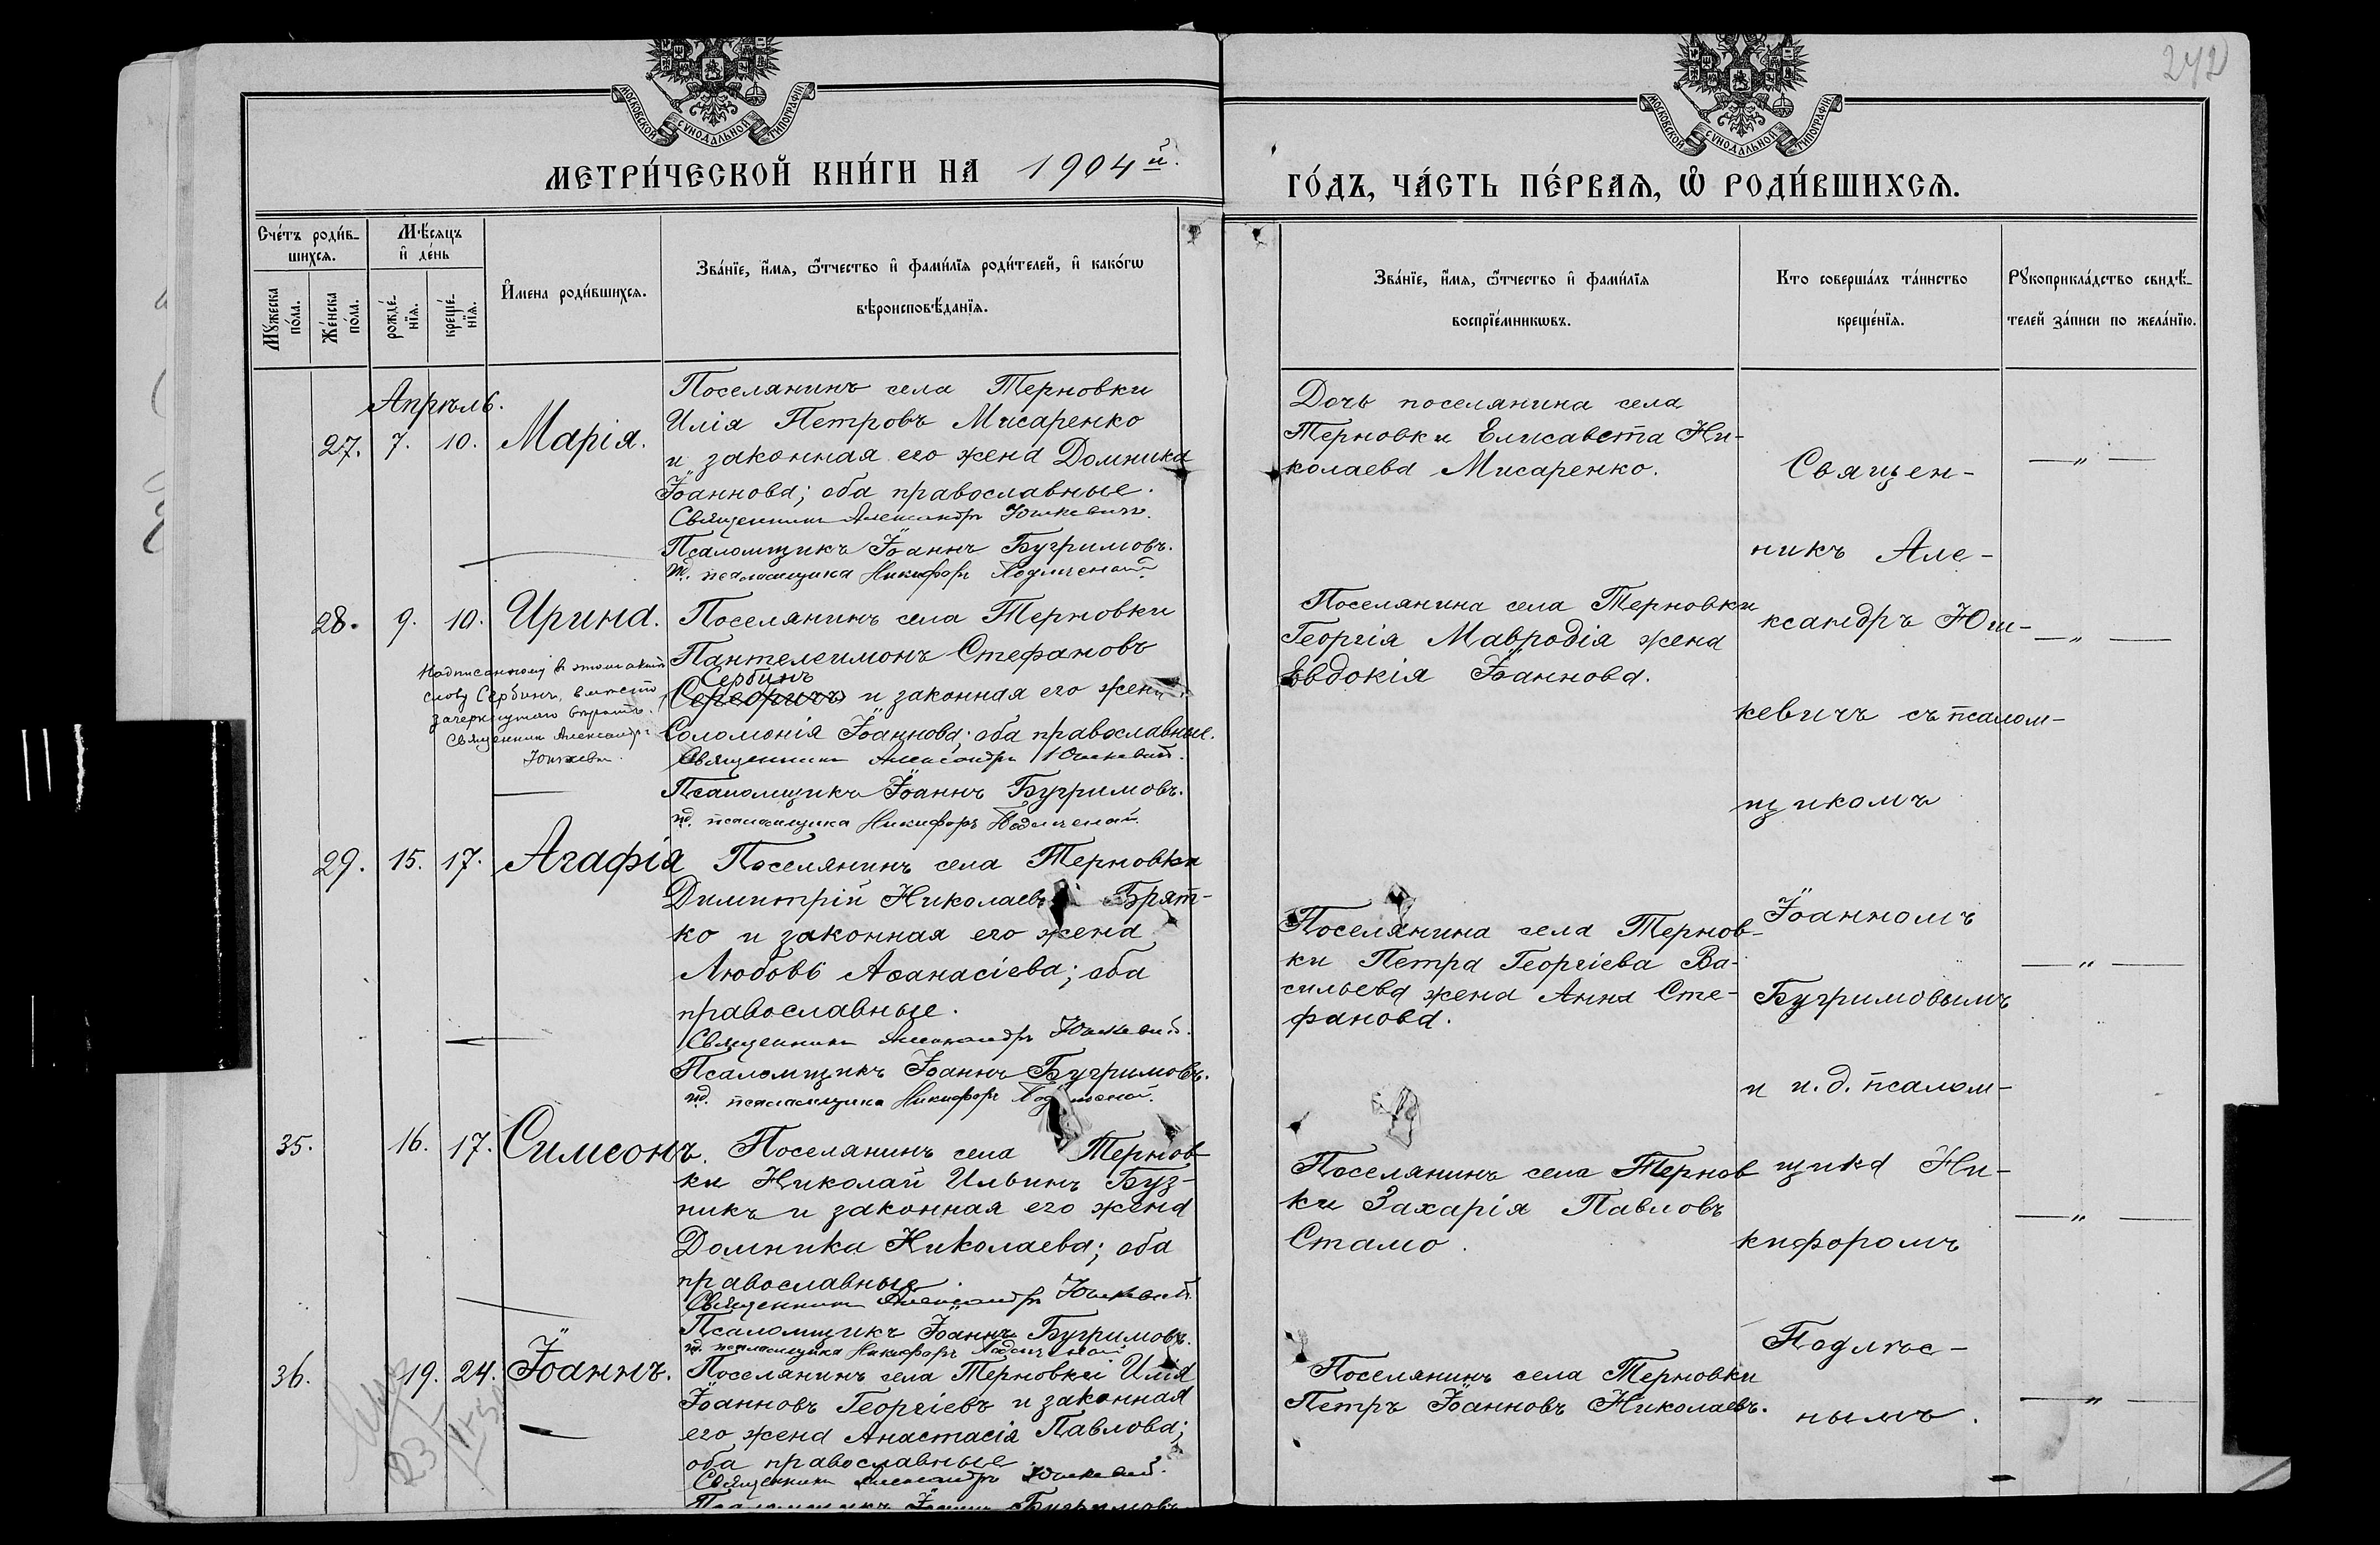 242
МОСКОВСКОЙ СѴНОДАЛЬНОЙ ТИПОГРАФІИ
МОСКОВСКОЙ СѴНОДАЛЬНОЙ ТИПОГРАФІИ
МЕТРИ́ЧЕСКОЙ КНИ́ГИ НА 1904й.
ГО́ДЪ, ЧА́СТЬ ПЕ́РВАЯ, Ѡ҆ РОДИ́ВШИХСЯ.
Сче́тъ роди́в-
шихсѧ.
Мѣ́сѧцъ
и҆ де́нь
Мꙋ́жеска
по́ла.
Же́нска
по́ла.
рожде́-
нїѧ.
креще́-
нїѧ.
И҆́мена роди́вшихсѧ.
Зва́нїе, и҆́мѧ, ѻ҆́тчество и҆ фами́лїѧ роди́телей, и҆ како́гѡ
вѣроисповѣ́данїѧ.
Зва́нїе, и҆́мѧ, ѻ҆́тчество и҆ фами́лїѧ
воспрїе́мникѡвъ.
Кто соверша́лъ та́инство
креще́нїѧ.
Рꙋкоприкла́дство свидѣ́-
телей за́писи по жела́нїю.
Апрѣль.
27. 7. 10. Марія.
Поселянинъ села Терновки
Илія Петровъ Мисаренко
и законная его жена Домника
Іоаннова; оба православные.
Священникъ Александръ Юшкевичъ.
Псаломщикъ Іоаннъ Бугримовъ.
и.д. псаломщика Никифоръ Подлѣсный.
Дочь поселянина села
Терновки Елисавета Ни-
колаева Мисаренко.
—„—
28. 9. 10. Ирина.
Поселянинъ села Терновки
Пантелеимонъ Стефановъ
Сербинъ
и законная его жена
Соломонія Іоаннова; оба православные.
Священникъ Александръ Юшкевичъ.
Псаломщикъ Іоаннъ Бугримовъ.
и.д. псаломщика Никифоръ Подлѣсный.
Надписанному в этомъ актѣ
слову Сербинъ, вмѣсто
зачеркнутаго вѣрить.
Священникъ Александръ
Юшкевичъ.
Поселянина села Терновки
Георгія Мавродія жена
Евдокія Іоаннова.
—„—
29. 15. 17. Агафія
Поселянинъ села Терновки
Димитрій Николаевъ Брят-
ко и законная его жена
Любовь Аѳанасіева; оба
православные.
Священникъ Александръ Юшкевичъ.
Псаломщикъ Іоаннъ Бугримовъ.
и.д. псаломщика Никифоръ Подлѣсный.
Поселянина села Тернов-
ки Петра Георгіева Ва-
сильева жена Анна Сте-
фанова.
—„—
35. 16. 17. Симеонъ.
Поселянинъ села Тернов-
ки Николай Ильинъ Буз-
никъ и законная его жена
Домника Николаева; оба
православные.
Священникъ Александръ Юшкевичъ.
Псаломщикъ Іоаннъ Бугримовъ.
и.д. псаломщика Никифоръ Подлѣсный
Поселянинъ села Тернов
ки Захарія Павловъ
Стамо.
—„—
36. 19. 24. Іоаннъ.
Поселянинъ села Терновки Илія
Іоанновъ Георгіевъ и законная
его жена Анастасія Павлова;
оба православные.
Священникъ Александръ Юшкевичъ.
Псаломщикъ Іоаннъ Бугримовъ
Поселянинъ села Терновки
Петръ Іоанновъ Николаевъ.
—„—
Священ-
никъ Але-
ксандръ Юш-
кевичъ съ псалом-
щикомъ
Іоанномъ
Бугримовымъ
и и.д. псалом-
щика Ни-
кифоромъ
Подлѣс-
нымъ.